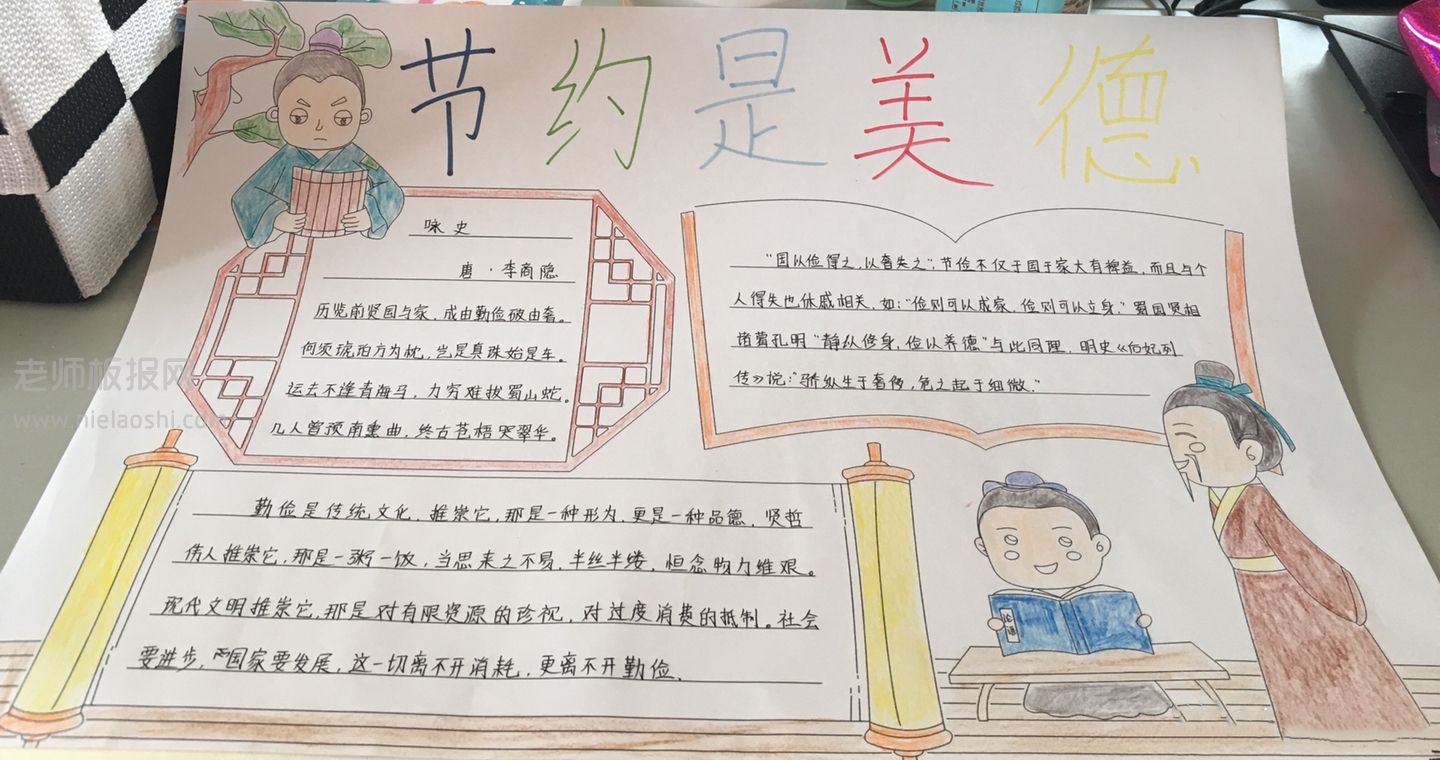 节约是美德
咏史
唐·李商隐
历览前贤国与家，成由勤俭破由奢。
何须琥珀方为枕，岂是真珠始是车。
运去不逢青海马，力穷难拔蜀山蛇。
几人曾预南熏曲，终古苍梧哭翠华。
“国以俭得之，以奢失之”，节俭不仅于国于家大有裨益，而且与个
人得失也休戚相关，如：“俭则可以成家，俭则可以立身。”蜀国贤相
诸葛孔明“静以修身，俭以养德”与此同理，明史《后妃列
传》说：“骄纵生于奢侈，危之起于细微。”
勤俭是传统文化，推崇它，那是一种形为，更是一种品德，贤哲
伟人推崇它，那是一粥一饭，当思来之不易，半丝半缕，恒念物力维艰。
现代文明推崇它，那是对有限资源的珍视，对过度消费的抵制。社会
要进步，国家要发展，这一切离不开消耗，更离不开勤俭．
论语
老师板报网
www.nielaoshi.com